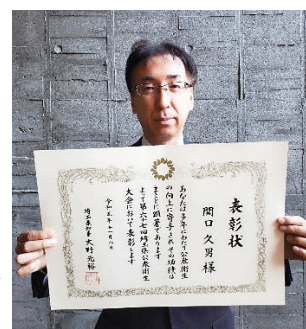 表彰状
関口久男様
あなたは多年にわたり公衆衛生
の向上に寄与されその功績は
まことに顕著であります
よって第六十七回埼玉県公衆衛生
大会において表彰します
令和五年十一月八日
埼玉県知事 大野元裕